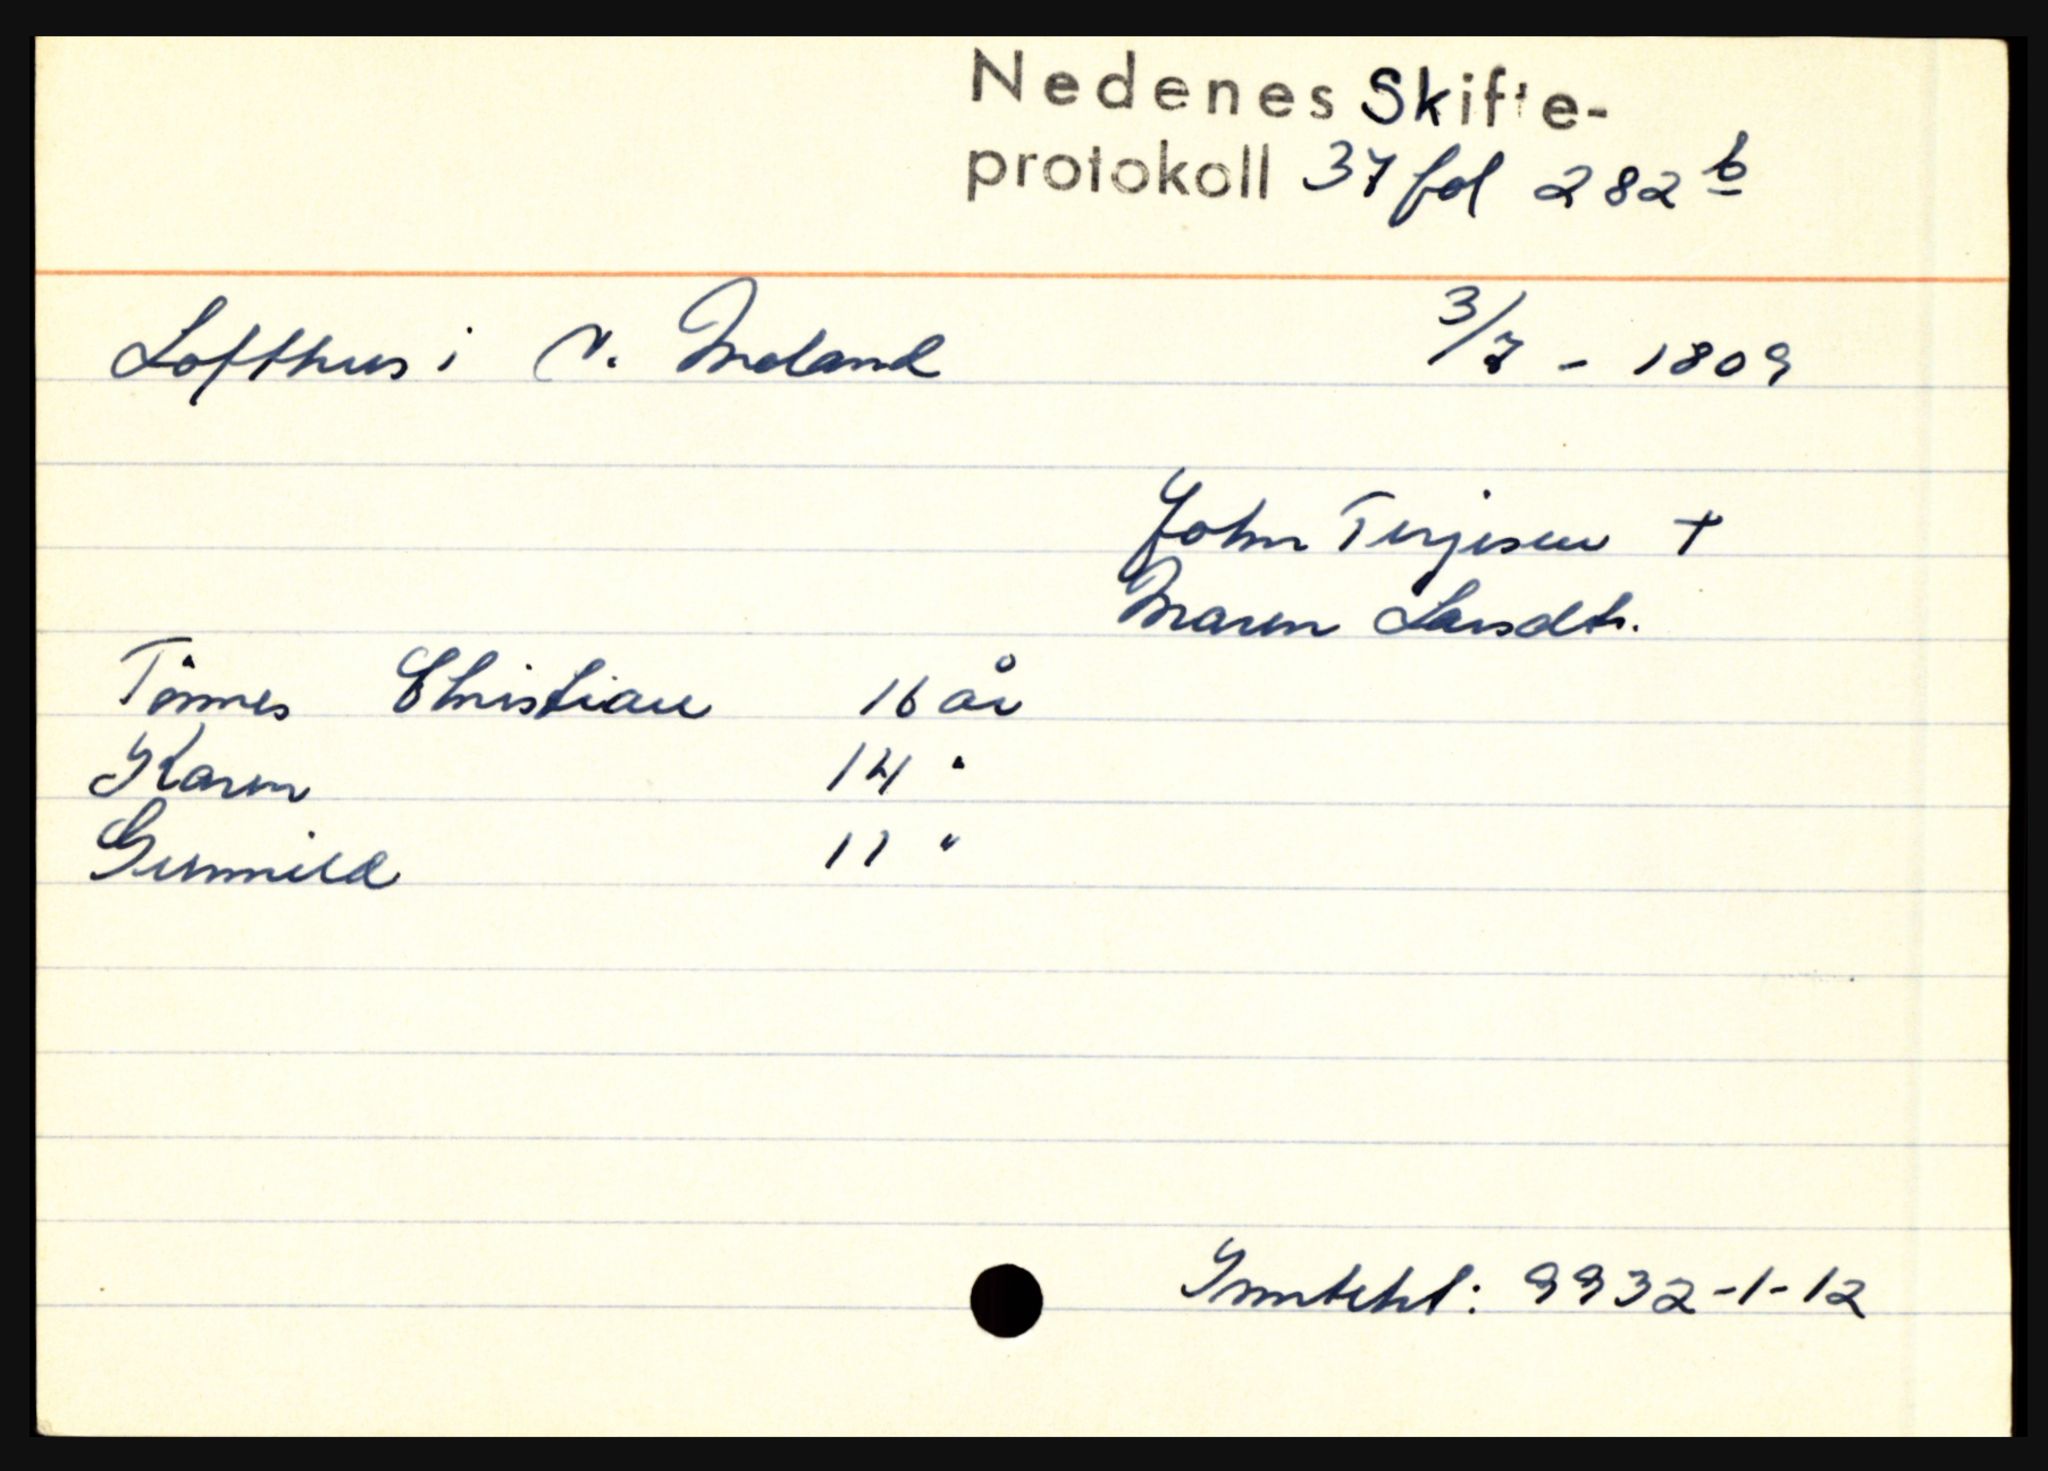 Nedenes Skifte-
protokoll 37 fol 282 b
Lofthus i V. Moland 3/7 - 1809
John Terjesen +
Maren Larsdtr.
Tønnes Christian 16 år
Karen 14 "
Gunnild 11 "
Inntekt: 9932-1-12